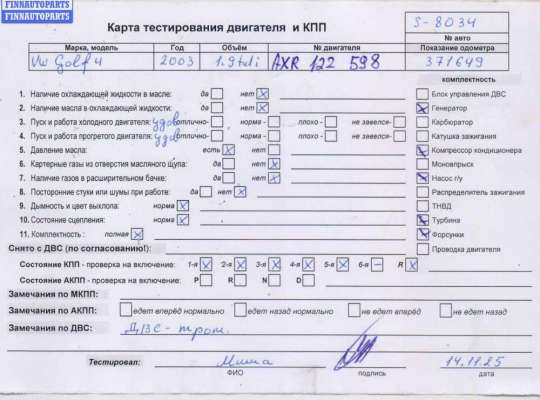 FINNAUTOPARTS
FINNAUTOPARTS
Карта тестирования двигателя и КПП
S-8034
№ авто
Марка, модель Год Объём № двигателя Показание одометра
VW Golf 4 2003 1.9tdi AXR 122 598 371649
комплектность
1. Наличие охлаждающей жидкости в масле: да нет X Блок управления ДВС
2. Наличие масла в охлаждающей жидкости: да нет X Генератор
3. Пуск и работа холодного двигателя: удов отлично- норма - плохо - не завелся- Карбюратор
4. Пуск и работа прогретого двигателя: удов отлично- норма - плохо - не завелся- Катушка зажигания
5. Давление масла: есть X нет Компрессор кондиционера
6. Картерные газы из отверстия масляного щупа: да нет X Моновпрыск
7. Наличие газов в расширительном бачке: да нет X Насос г/у
8. Посторонние стуки или шумы при работе: да нет X Распределитель зажигания
9. Дымность и цвет выхлопа: норма X ТНВД
10. Состояние сцепления: норма X Турбина
11. Комплектность : полная X Форсунки
Снято с ДВС (по согласованию!): Проводка двигателя
Состояние КПП - проверка на включение: 1-я X 2-я X 3-я X 4-я X 5-я X 6-я — R X
Состояние АКПП - проверка на включение: P R N D
Замечания по МКПП:
Замечания по АКПП: едет вперёд нормально едет назад нормально не едет вперёд не едет назад
Замечания по ДВС: ДВС - трот.
Тестировал: Миша 14.11.25
ФИО подпись дата